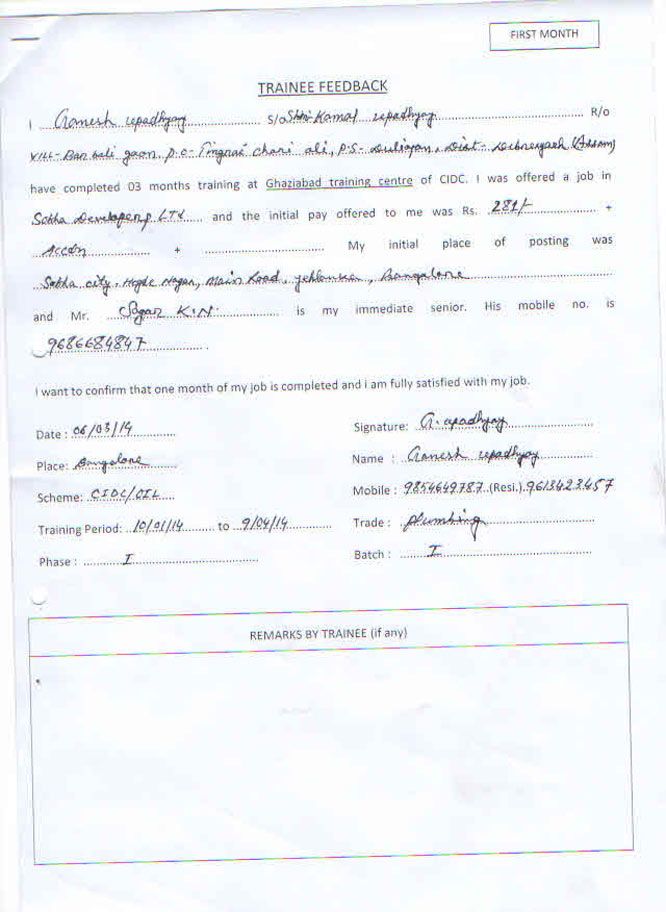 FIRST MONTH
TRAINEE FEEDBACK
I Ganesh upadhyay S/o Shri Kamal upadhyay R/o
VILL- Ban gaon, p.o- chari ali, P.S- Duliajan, Dist- (Assam)
have completed 03 months training at Ghaziabad training centre of CIDC. I was offered a job in
Sobha Developers LTD and the initial pay offered to me was Rs. 281/- +
Accdn + My initial place of posting was
Sobha city, Hegde Nagar, Main Road, yehlanka, Bangalore
and Mr. Sagar K.N. is my immediate senior. His mobile no. is
9686684847
I want to confirm that one month of my job is completed and i am fully satisfied with my job.
Date : 06/03/14
Signature: G. upadhyay
Place: Bangalore
Name : Ganesh upadhyay
Scheme: CIDC/OIL
Mobile : 9854649787 (Resi.) 9613423457
Training Period: 10/01/14 to 9/04/14
Trade : plumbing
Phase : I
Batch : I
REMARKS BY TRAINEE (if any)